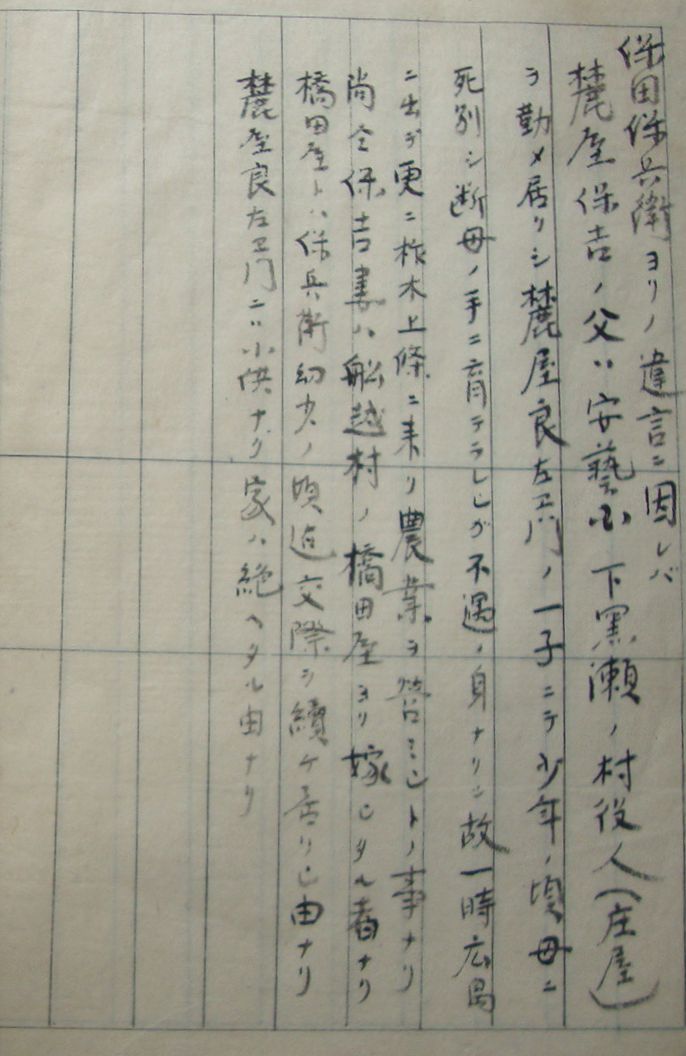 保田保兵衛ヨリノ違言ニ因レバ
麓屋保吉ノ父ハ安藝 下黒瀬ノ村役人(庄屋)
ヲ勤メ居リシ麓屋良左エ門ノ一子ニテ少年ノ頃母ニ
死別シ 母ノ手ニ育テラレシガ不遇ノ身ナリシ故一時広島
ニ出デ更ニ柞木上條ニ来リ農業ヲ営ミシトノ事ナリ
尚今保吉妻ハ船越村ノ橋田屋ヨリ嫁シタル者ナリ
橋田屋トハ保兵衛幼少ノ頃迠交際ヲ續ケ居リシ由ナリ
麓屋良左エ門ニハ小供ナク家ハ絶ヘタル由ナリ